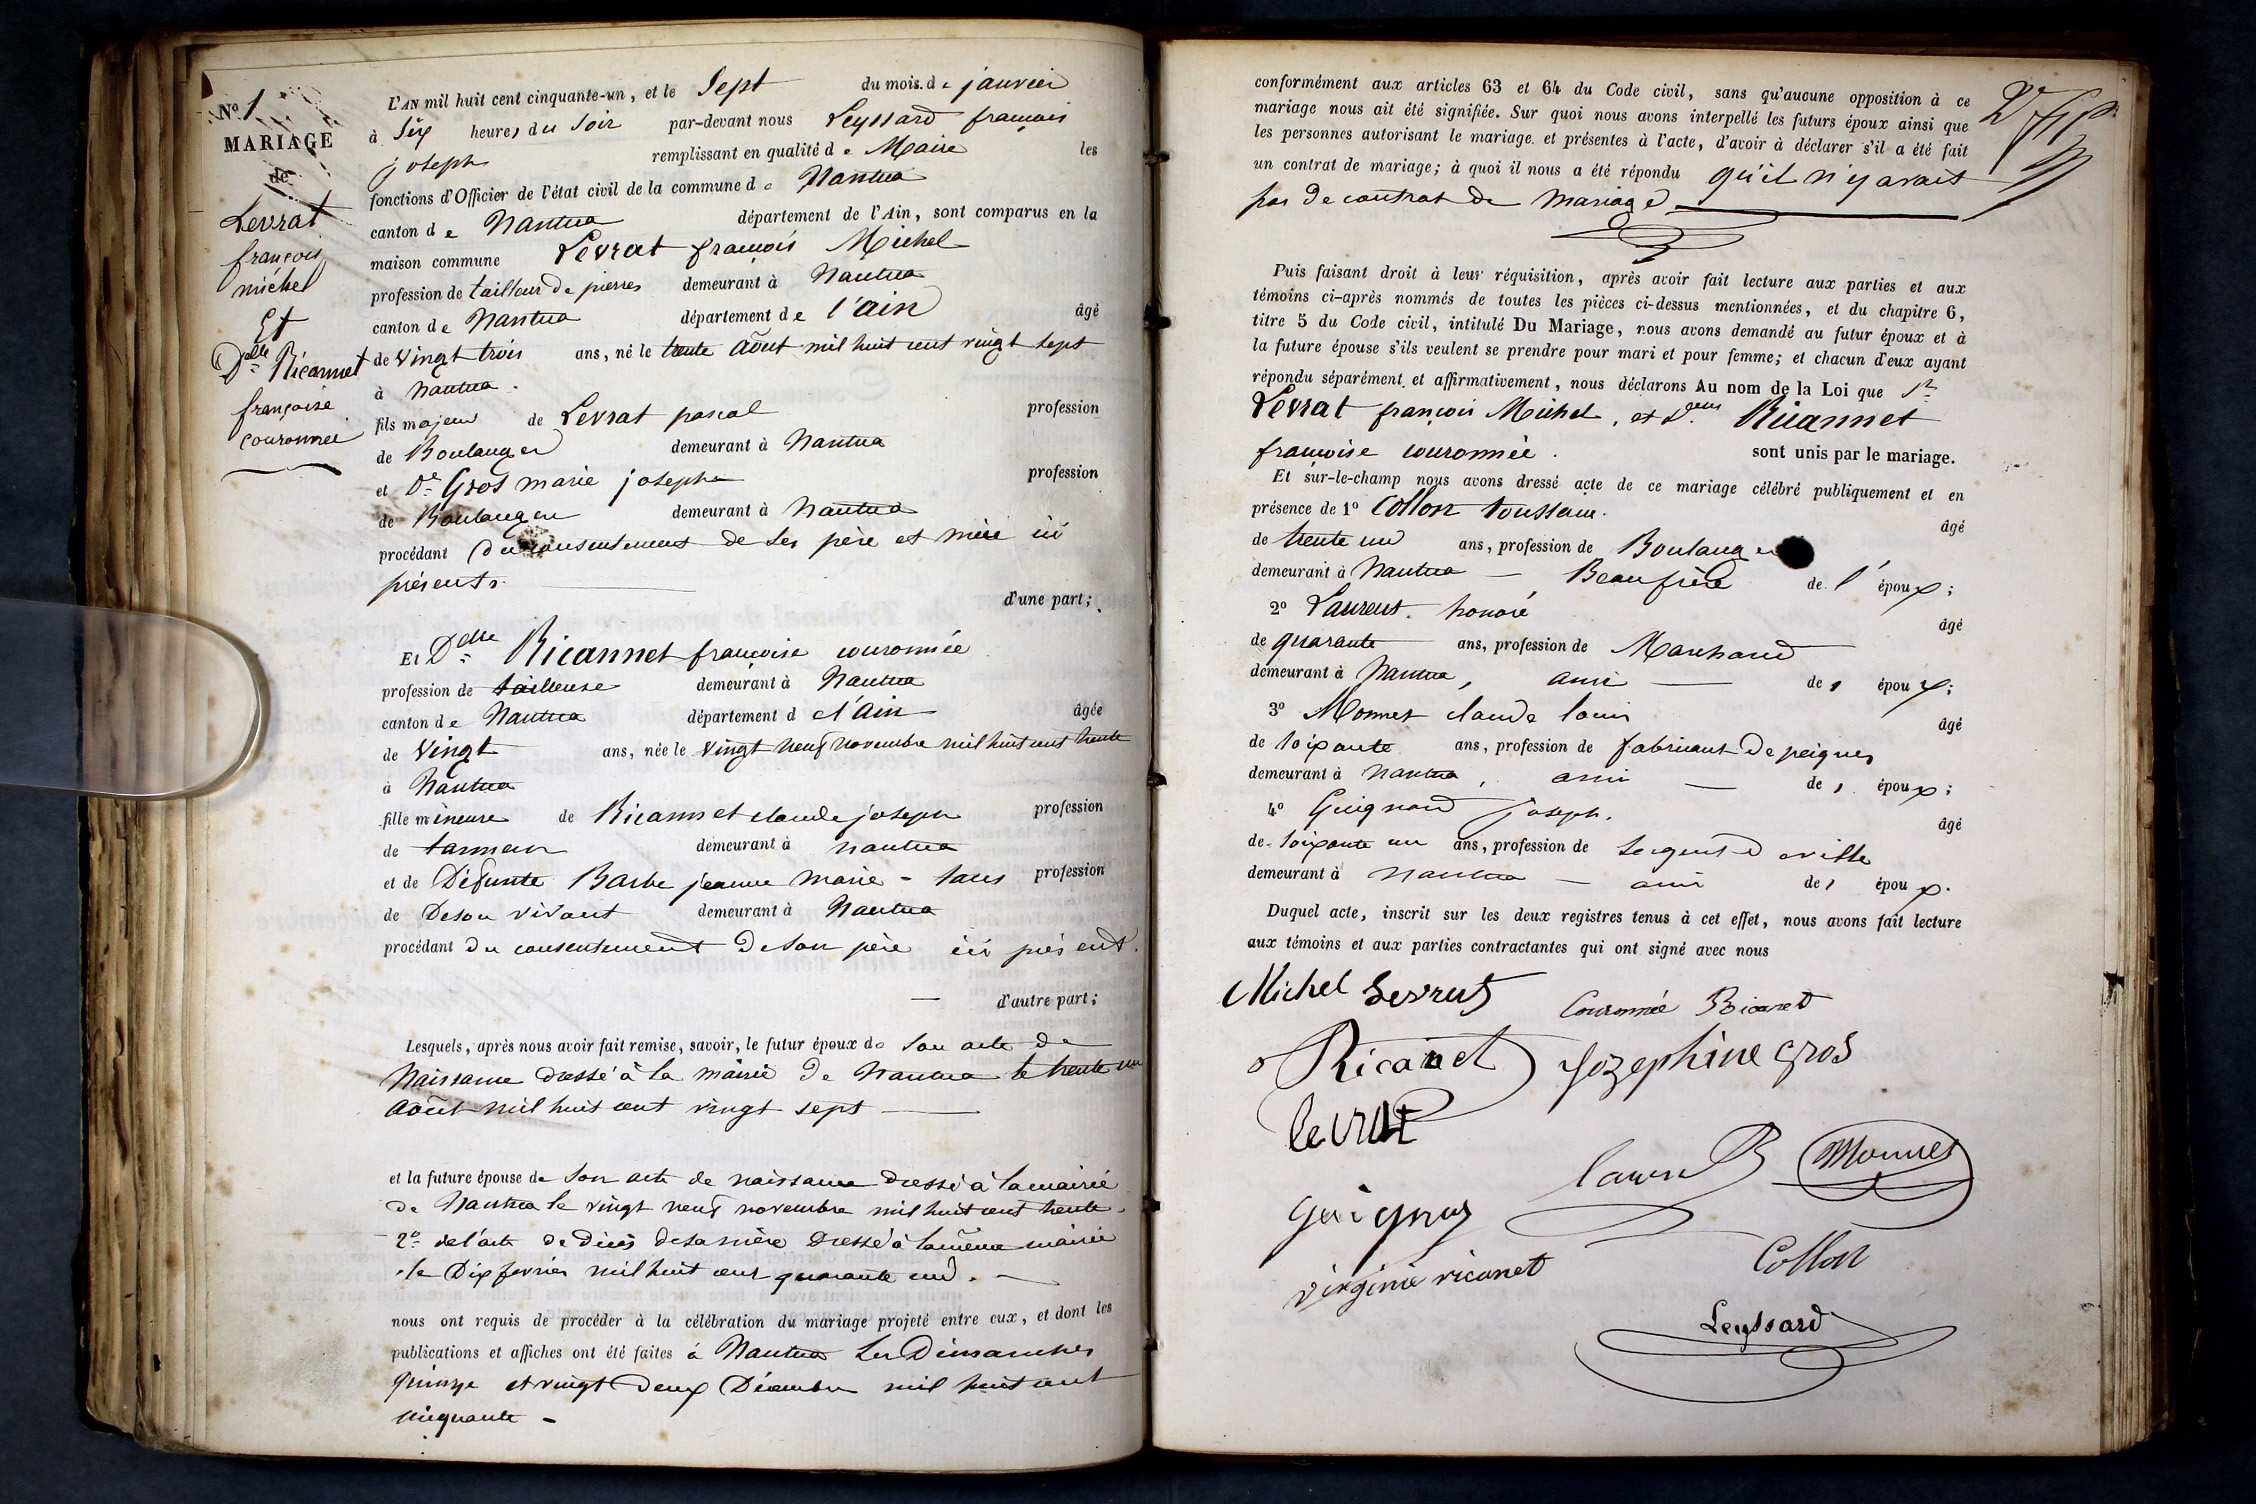 N.º 1
MARIAGE
de
Levrat
françois
michel
Et
Delle Ricannet
françoise
couronnée
L'AN mil huit cent cinquante-un, et le Sept du mois de janvier
à Six heures du Soir par-devant nous Leyssard françois
joseph remplissant en qualité de Maire les
fonctions d'Officier de l'état civil de la commune de Nantua
canton de Nantua département de l'Ain, sont comparus en la
maison commune Levrat françois Michel
profession de tailleur de pierres demeurant à Nantua
canton de Nantua département de l'ain âgé
de vingt trois ans, né le trente août mil huit cent vingt sept
à Nantua.
fils majeur de Levrat pascal profession
de Boulanger demeurant à Nantua
et De Gros marie josephe profession
de Boulangere demeurant à Nantua
procédant du consentement de ses père et mère ici
présents. d'une part;
Et Delle Ricannet françoise couronnée
profession de tailleuse demeurant à Nantua
canton de Nantua département d el'Ain âgée
de Vingt ans, née le vingt neuf novembre mil huit cent trente
à Nantua
fille mineure de Ricannet claude joseph profession
de tanneur demeurant à nantua
et de Défunte Barbe jeanne marie - sans profession
de De son vivant demeurant à Nantua
procédant du consentement de son père ici présent.
d'autre part;
Lesquels, après nous avoir fait remise, savoir, le futur époux de son acte de
Naissance dressé à la mairie de Nantua le trente un
août mil huit cent vingt sept
et la future épouse de son acte de naissance dressé à la mairie
de Nantua le vingt neuf novembre mil huit cent trente.
2º de l'acte de décès de sa mère dressé à la même mairie
le Dix fevrier mil huit cent quarante un.
nous ont requis de procéder à la célébration du mariage projeté entre eux, et dont les
publications et affiches ont été faites à Nantua les Dimanches
quinze et vingt deux Décembre mil huit cent
cinquante
conformément aux articles 63 et 64 du Code civil, sans qu'aucune opposition à ce
mariage nous ait été signifiée. Sur quoi nous avons interpellé les futurs époux ainsi que
les personnes autorisant le mariage et présentes à l'acte, d'avoir à déclarer s'il a été fait
un contrat de mariage; à quoi il nous a été répondu qu'il n'y avait
pas de contrat de mariage
Puis faisant droit à leur réquisition, après avoir fait lecture aux parties et aux
témoins ci-après nommés de toutes les pièces ci-dessus mentionnées, et du chapitre 6,
titre 5 du Code civil, intitulé Du Mariage, nous avons demandé au futur époux et à
la future épouse s'ils veulent se prendre pour mari et pour femme; et chacun d'eux ayant
répondu séparément et affirmativement, nous déclarons Au nom de la Loi que Sr
Levrat françois Michel, et Delle Ricannet
françoise couronnée. sont unis par le mariage.
Et sur-le-champ nous avons dressé acte de ce mariage célébré publiquement et en
présence de 1º Collon toussain. âgé
de trente un ans, profession de Boulanger
demeurant à Nantua Beaufrère de l' époux;
2º Laurent honoré âgé
de quarante ans, profession de Marchand
demeurant à Nantua, ami de l' époux;
3º Monnet claude louis âgé
de soixante ans, profession de fabricant de peignes
demeurant à nantua, ami de l' époux;
4º Guignard joseph. âgé
de soixante un ans, profession de sergent de ville
demeurant à nantua ami de l' époux.
Duquel acte, inscrit sur les deux registres tenus à cet effet, nous avons fait lecture
aux témoins et aux parties contractantes qui ont signé avec nous
Michel Levrat Couronnée Ricanet
Ricanet Jozephine gros
levrat
laurent Monnet
virginie ricanet Collon
Leyssard